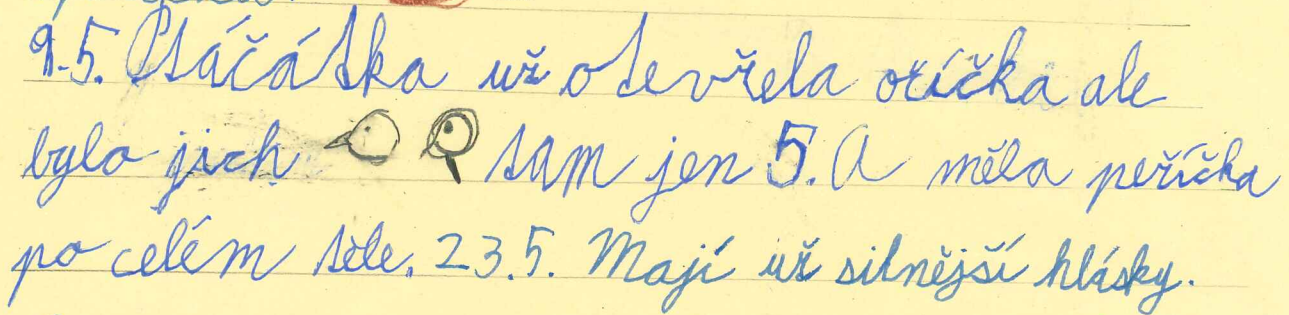 9.5. Ptáčátka už otevřela očíčka ale
bylo jich tam jen 5. A měla peříčka
po celém těle. 23.5. Mají už silnější hlásky.